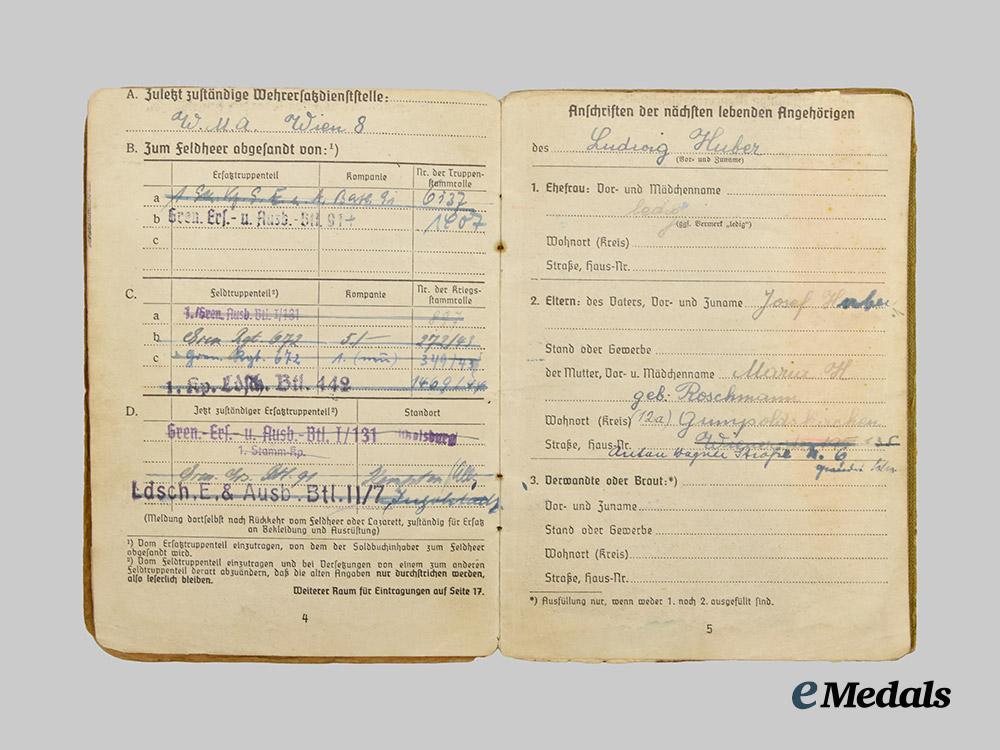 A. Zuletzt zuständige Wehrersatzdienststelle:
W.M.A. Wien 8
B. Zum Feldheer abgesandt von:¹)
Ersatztruppenteil Kompanie Nr. der Truppen-
stammrolle
a 0137
b Gren. Ers.- u. Ausb.-Btl. 91 1607
c
C. Feldtruppenteil²) Kompanie Nr. der Kriegs-
stammrolle
a 1./Gren. Ausb. Btl. I/131
b Gren. Rgt. 672 5/-
c Gren. Rgt. 672 1.
1. Kp. Ldsch. Btl. 442
D. Jetzt zuständiger Ersatztruppenteil²) Standort
Gren.-Ers.- u. Ausb.-Btl. I/131
1. Stamm-Kp.
Kempten
Ldsch. E. & Ausb. Btl. II/7 Ingolstadt
(Meldung dortselbst nach Rückkehr vom Feldheer oder Lazarett, zuständig für Ersatz
an Bekleidung und Ausrüstung)
¹) Vom Ersatztruppenteil einzutragen, von dem der Soldbuchinhaber zum Feldheer
abgesandt wird.
²) Vom Feldtruppenteil einzutragen und bei Versetzungen von einem zum anderen
Feldtruppenteil derart abzuändern, daß die alten Angaben nur durchstrichen werden,
also leserlich bleiben.
Weiterer Raum für Eintragungen auf Seite 17.
4
Anschriften der nächsten lebenden Angehörigen
des Ludwig Huber
(Vor- und Zuname)
1. Ehefrau: Vor- und Mädchenname
ledig
(ggf. Vermerk „ledig“)
Wohnort (Kreis)
Straße, Haus-Nr.
2. Eltern: des Vaters, Vor- und Zuname Josef Huber
Stand oder Gewerbe
der Mutter, Vor- u. Mädchenname Maria H
geb. Roschmann
Wohnort (Kreis) (12a) Gumpoldskirchen
Straße, Haus-Nr.
Anton Wagner Straße N. 6
3. Verwandte oder Braut:*)
Vor- und Zuname
Stand oder Gewerbe
Wohnort (Kreis)
Straße, Haus-Nr.
*) Ausfüllung nur, wenn weder 1. noch 2. ausgefüllt sind.
5
eMedals